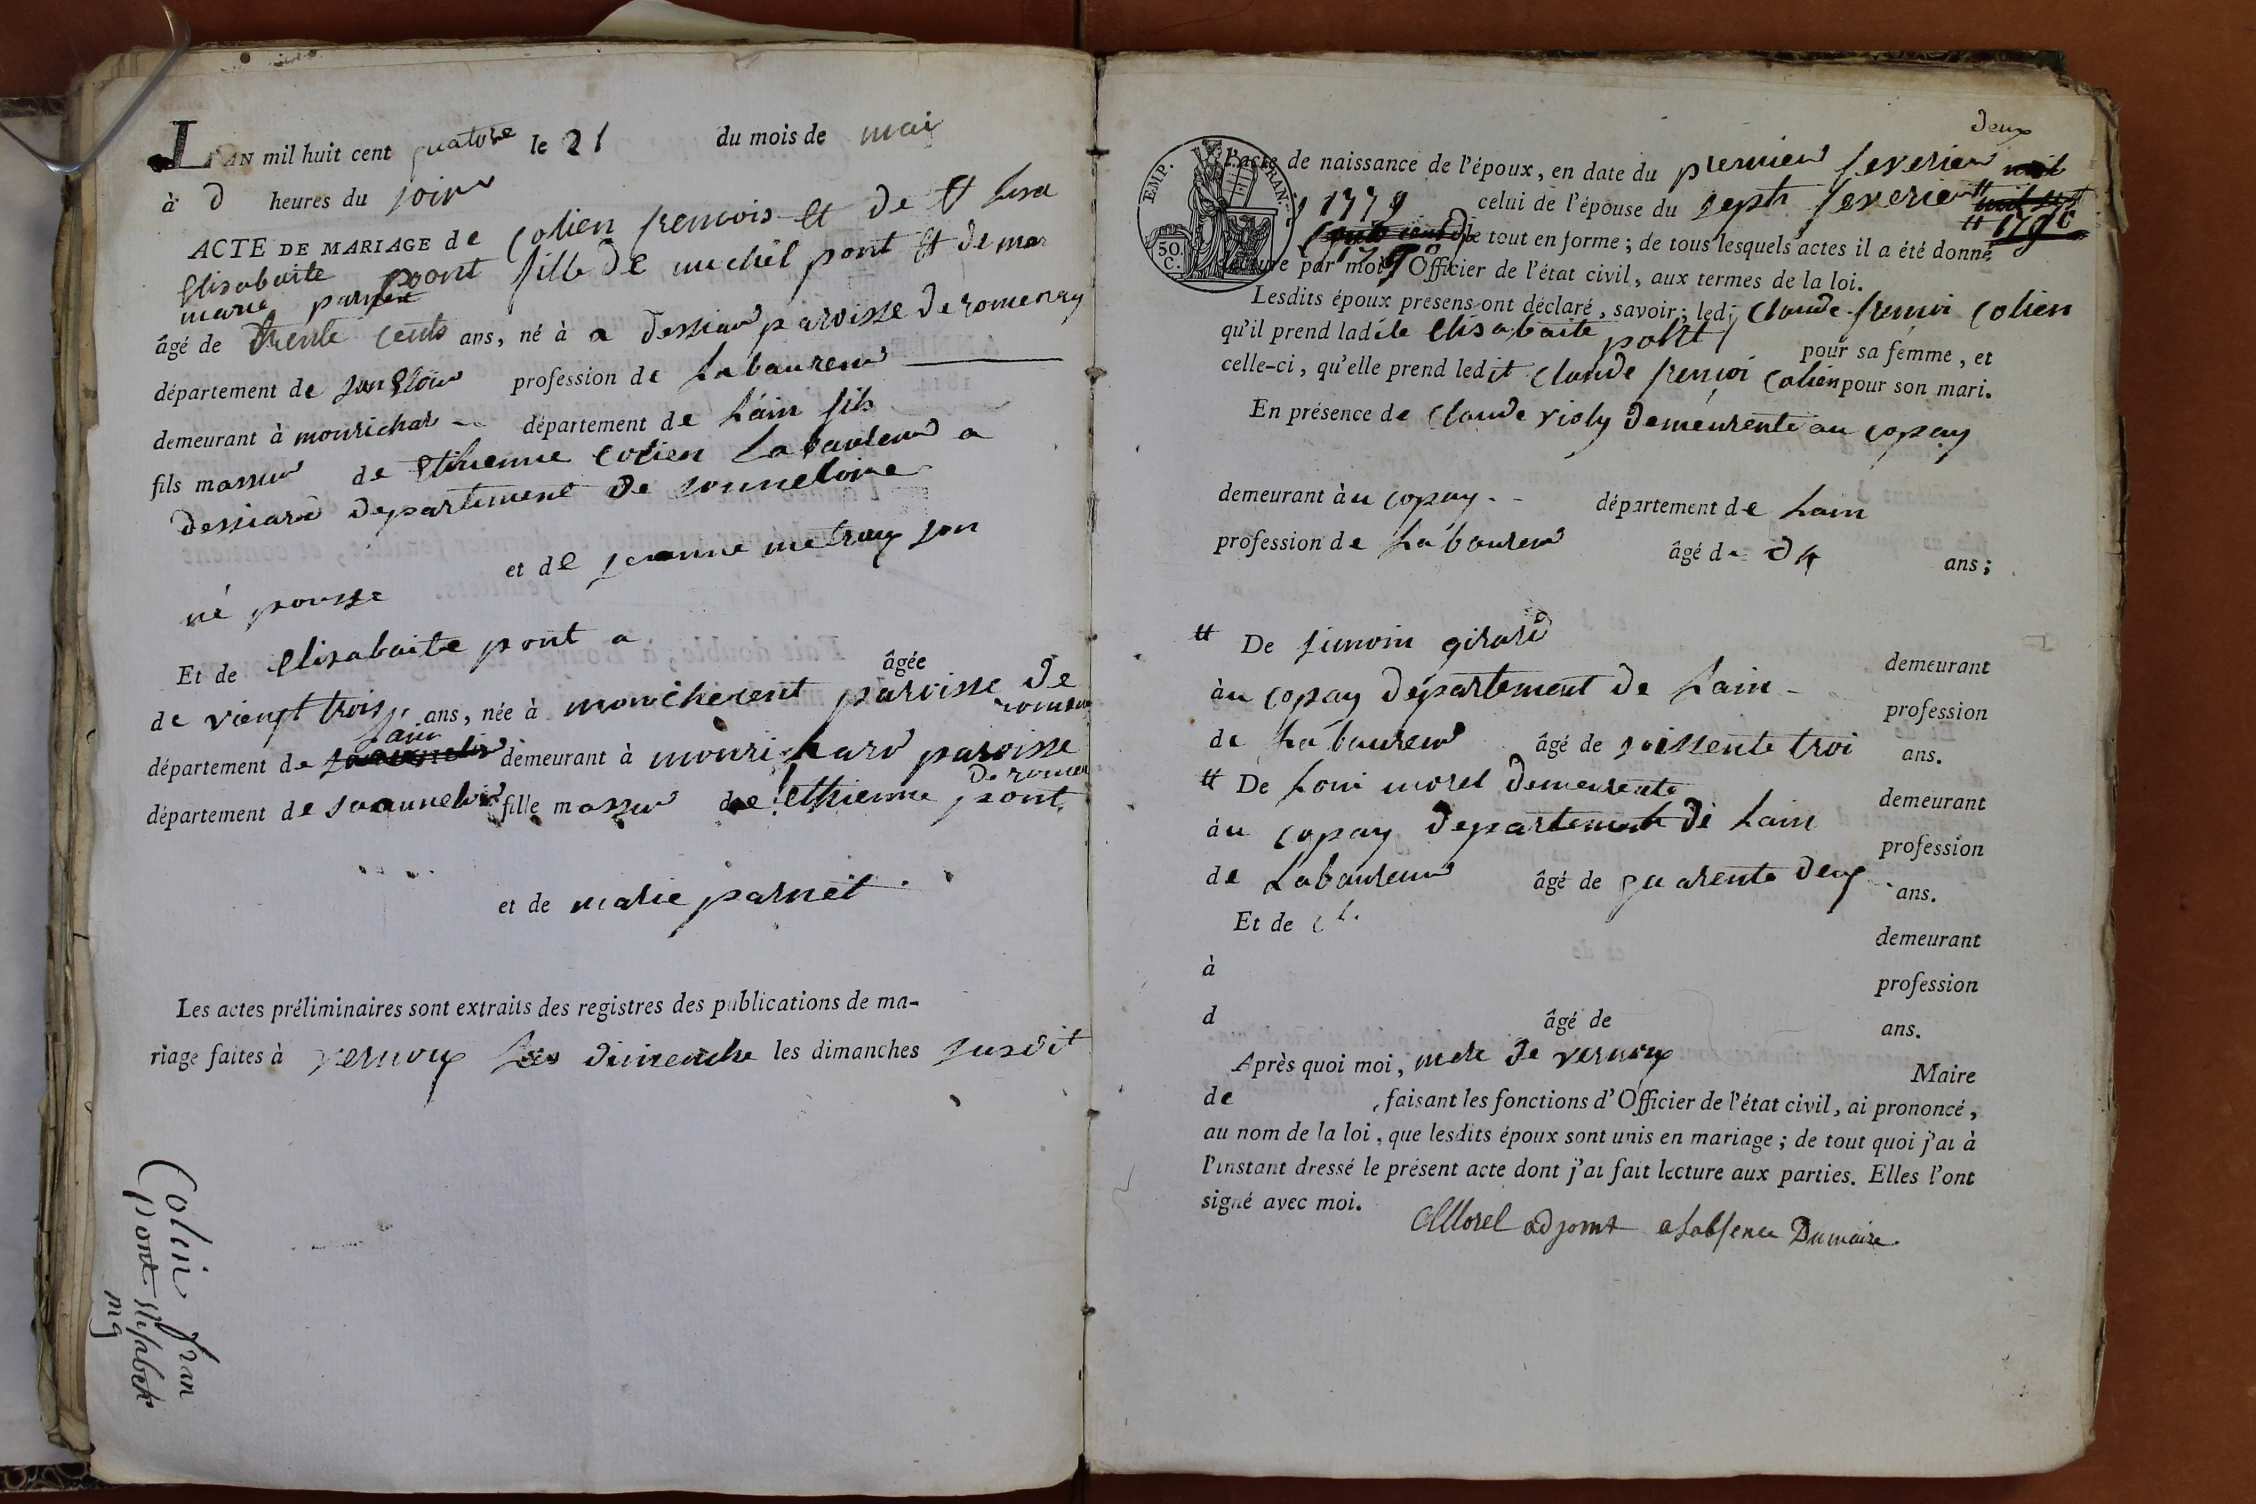 L'AN mil huit cent quatore le 21 du mois de mai
à D heures du soire
ACTE DE MARIAGE de Colien frencois et de
Elisabaite pont fille de michel pont et de mar
marie parnet
âgé de trente cents ans, né à a dessiar paroisse de romenay
département de profession de Labaureur
demeurant à mourichar département de Lain fils
fils massur de Ethienne Colien Labaureur a
dessiard departement de sonneloire
et de jeanne metray son
né pousse
Et de Elisabaite pont a âgée
de viengt trois ans, née à moncherent paroisse de
romena
Lain
département de demeurant à mourichard paroisse
de romen
département de fille massur de Ethienne pont
et de marie parnet
Les actes préliminaires sont extraits des registres des publications de ma-
riage faites à vernoux Les dimenche les dimanches susdit
Colin fran
pont Elisabeth
mg
deux
EMP. FRAN.
50.
C.
l'acte de naissance de l'époux, en date du premier feverier mil
1779 celui de l'épouse du septh feverier
1790
le tout en forme ; de tous lesquels actes il a été donné
lecture par moi, Officier de l'état civil, aux termes de la loi.
Lesdits époux présens ont déclaré, savoir : ledi Claude frençoi Colien
qu'il prend ladite Elisabaite pont pour sa femme, et
celle-ci, qu'elle prend ledit Claude frençoi Colien pour son mari.
En présence de Claude violy demeurente au Copay
demeurant àu Copay département de Lain
profession de Labaureur âgé de 24 ans ;
tt De simoin girard
demeurant
àu Copay département de Lain
profession
de Labaureur âgé de soissente troi ans.
tt De Loui morel demeurente
demeurant
àu Copay departement de Lain
profession
de Labaureur âgé de quarente deux ans.
Et de
demeurant
à
profession
d âgé de ans.
Après quoi moi, mere de vernoux Maire
de , faisant les fonctions d'Officier de l'état civil, ai prononcé,
au nom de la loi, que lesdits époux sont unis en mariage ; de tout quoi j'ai à
l'instant dressé le présent acte dont j'ai fait lecture aux parties. Elles l'ont
signé avec moi.
Morel adjoint a Labsence Dumaire.